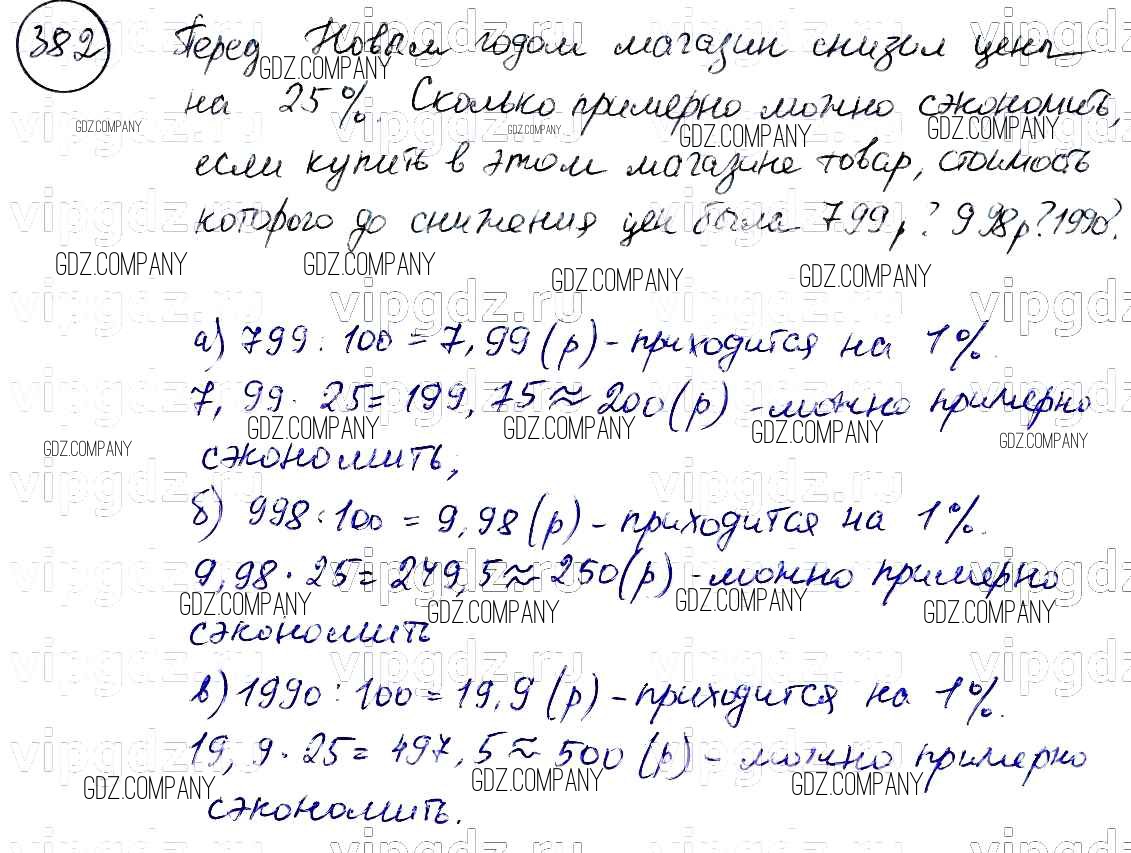 382 Перед Новым годом магазин снизил цены
на 25%. Сколько примерно можно сэкономить,
если купить в этом магазине товар, стоимость
которого до снижения цен была 799 р? 998 р? 1990?
а) 799 : 100 = 7,99 (р) - приходится на 1%.
7,99 · 25 = 199,75 ≈ 200 (р) - можно примерно
сэкономить,
б) 998 : 100 = 9,98 (р) - приходится на 1%.
9,98 · 25 = 249,5 ≈ 250 (р) - можно примерно
сэкономить
в) 1990 : 100 = 19,9 (р) - приходится на 1%.
19,9 · 25 = 497,5 ≈ 500 (р) - можно примерно
сэкономить.
GDZ.COMPANY
vipgdz.ru